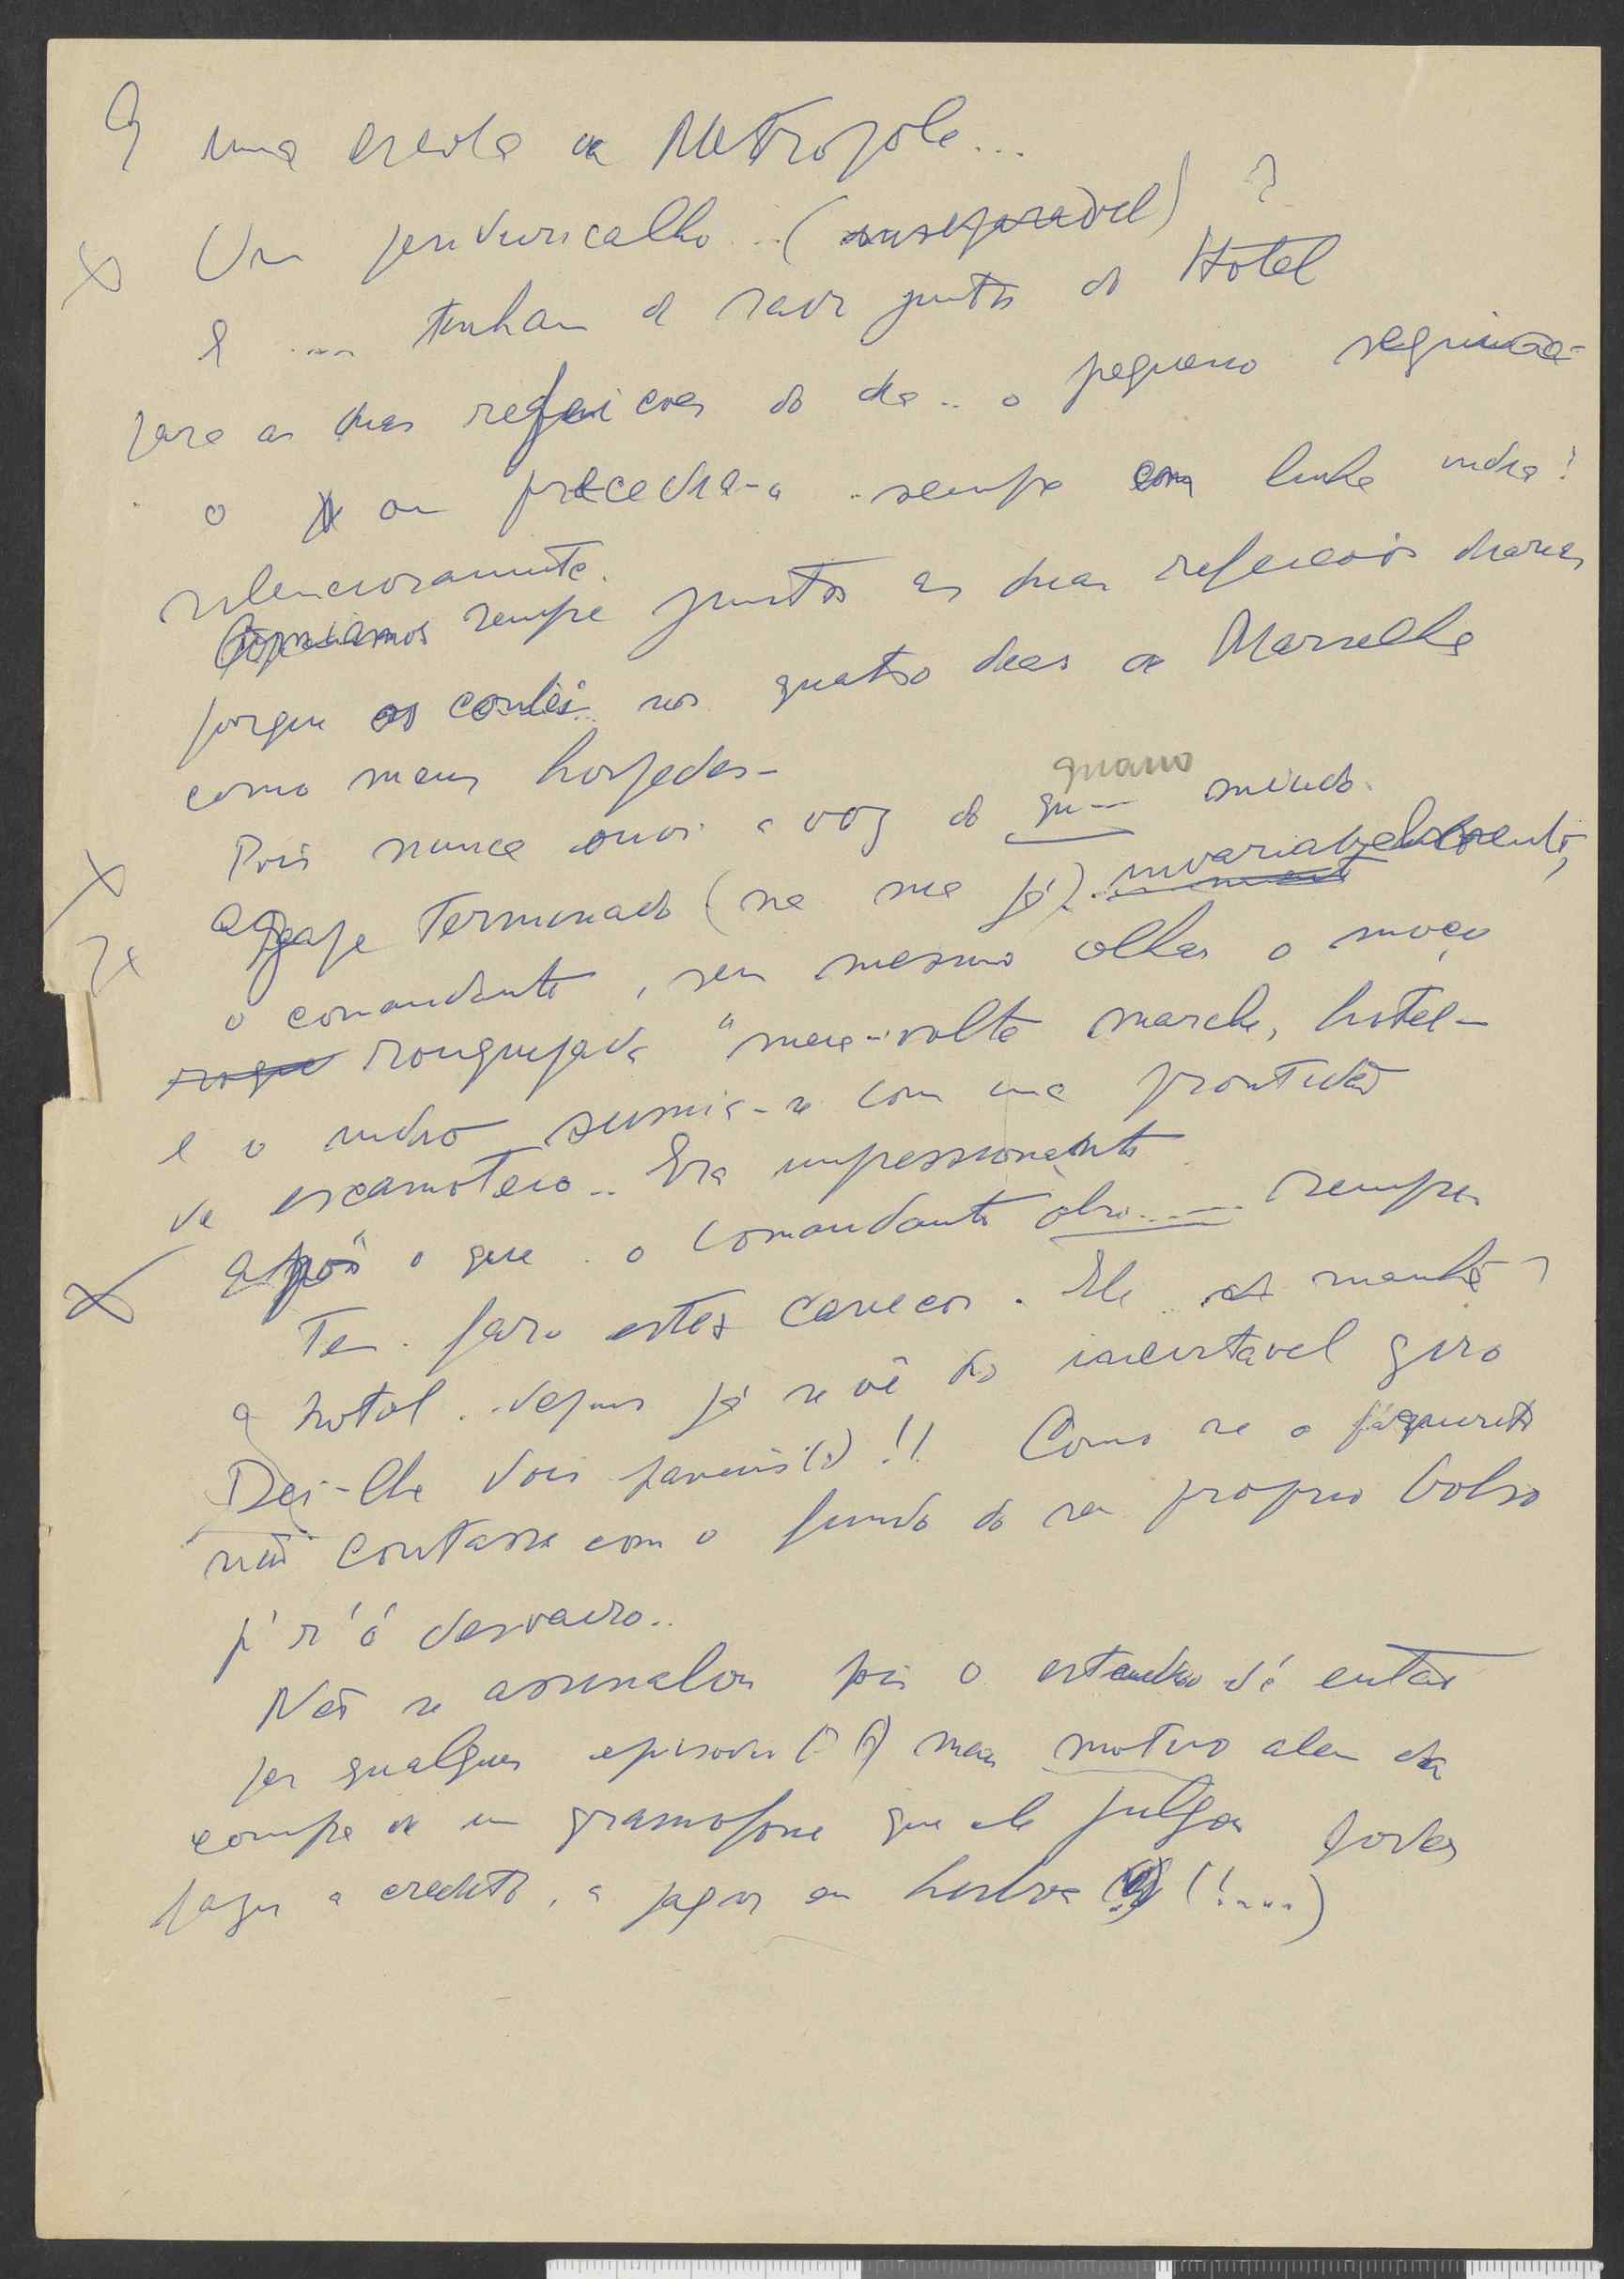 uma escola da Metropole...
Um penduricalho... (inseparavel) ?
E .... tinham de sair juntos do Hotel
para as duas refeicoes do dia.. o pequeno seguindo-
o ou precedia-a .. sempre em linha india!
silenciosamente.
sempre juntos as duas refeicois diarias
porque os contei.. nos quatro dias de Marselha
como meus hospedes-
Pois nunca ouvi a voz do gu--- miudo.
guano
agape terminado (na rua já).. invariavelmente,
o comandante, sem mesmo olhar o moço
rouquejava "meia-volta marche, hotel-
e o indio sumia-se com uma prontidão
de escamoteio.. Era impressionante
após o que . o comandante abri..... sempre
Tem . faro estes carecas . Ele
a hotel .. depois já se vê do inevitavel giro
Dei-lhe dois parceiros(?) !! Como se o
não contasse com o fundo do seu proprio bolso
p'r'ó desvairo..
Não se assinalou pois o de então
por qualquer episodio (? ?) mais motivo alem da
compra de um gramofone que ele julgou poder
fazer a credito, a pagar em Lisboa (!....)